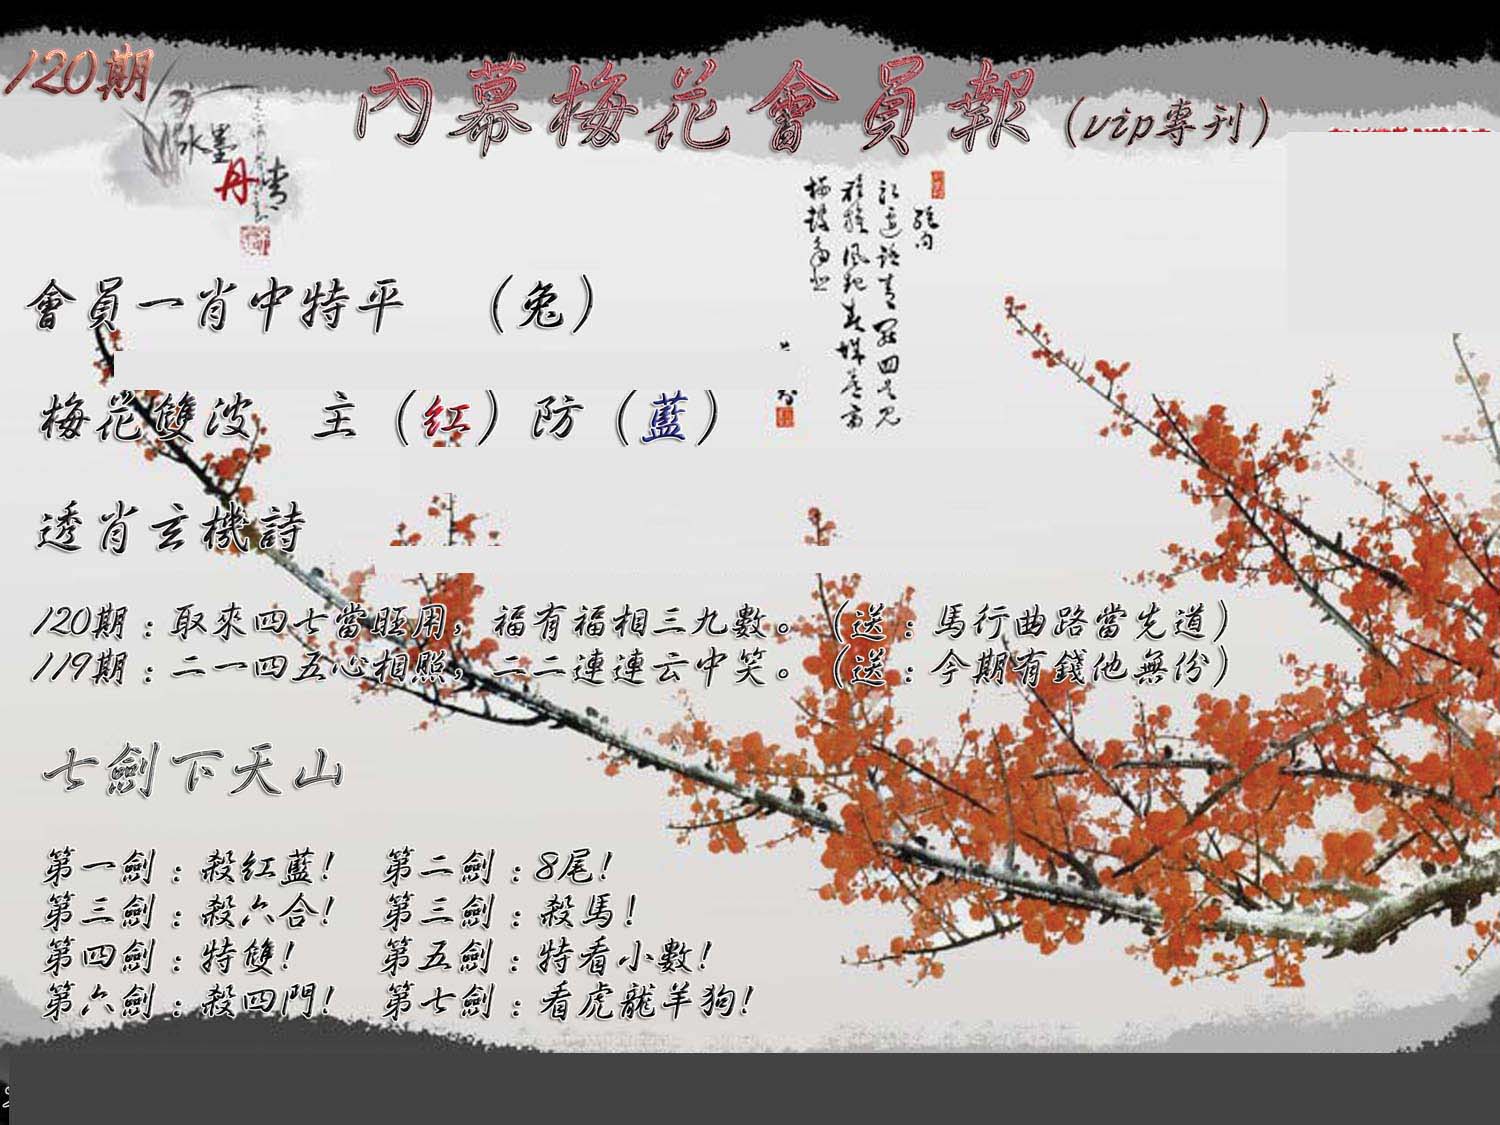 120期
內幕梅花會員報（vip專刊）
水墨
丹青
會員一肖中特平　（兔）
梅花雙波　主（紅）防（藍）
透肖玄機詩
120期：取來四七當旺用，福有福相三九數。（送：馬行曲路當先道）
119期：二一四五心相照，二二連連云中笑。（送：今期有錢他無份）
七劍下天山
第一劍：殺紅藍！　第二劍：8尾！
第三劍：殺六合！　第三劍：殺馬！
第四劍：特雙！　第五劍：特看小數！
第六劍：殺四門！　第七劍：看虎龍羊狗！